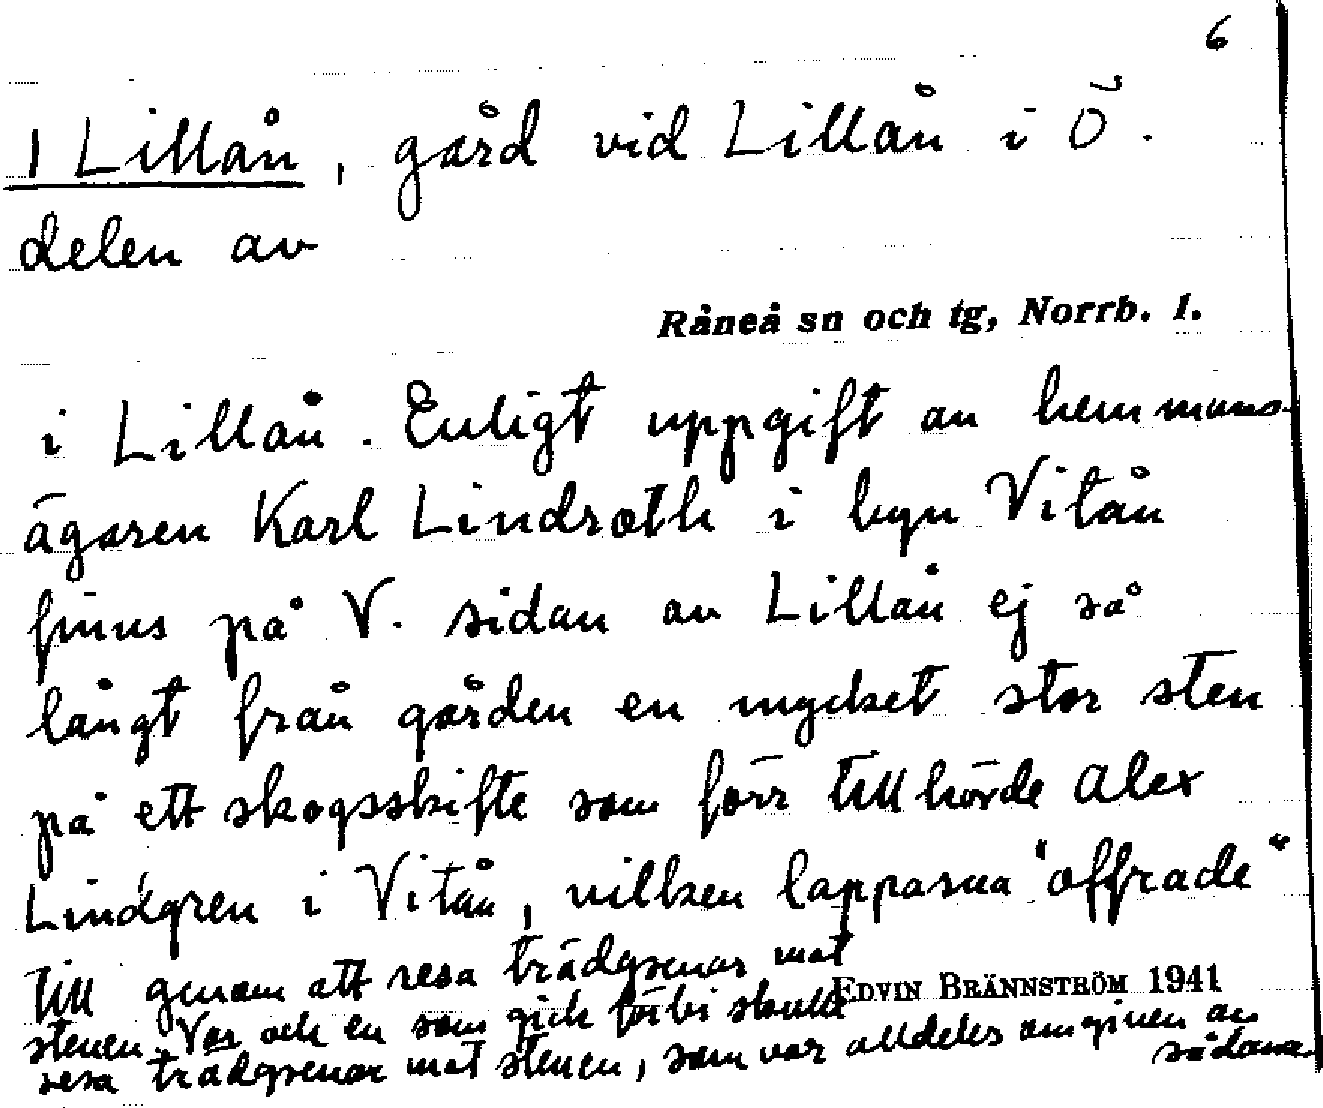 6
I Lillån, gård vid Lillån i Ö.
delen av
Råneå sn och tg, Norrb. l.
i Lillån. Enligt uppgift av hemmans-
ägaren Karl Lindroth i byn Vitån
finns på V. sidan av Lillån ej så
långt från gården en mycket stor sten
på ett skogsskifte som förr tillhörde Alex
Lindgren i Vitån, vilken lapparna "offrade"
till genom att resa trädgrenar mot
EDVIN BRÄNNSTRÖM 1941
stenen. Var och en som gick förbi skulle
resa trädgrenar mot stenen, som var alldeles omgiven av
sådana